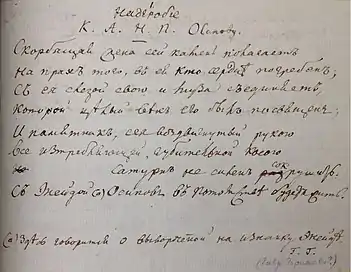 Надгробіе
К. А. Н. П. Осипову.
Скорбящая жена сей камень полагаетъ
На прахъ того, въ ней кто сердце погребенъ,
Съ ея слезой свою и муза съединяетъ,
Которой цѣлый вѣкъ его былъ посвященъ;
И памятникъ, сея воздвигнутый рукою
Все истребляющей, губительной косою
Сатурнъ не силенъ сокрушить.
Съ Энейдой (а) Осиповъ въ потомствѣ будетъ жить.
(а) Здѣсь говорится о вывороченой на изнанку Энейдѣ.
Г. Г.